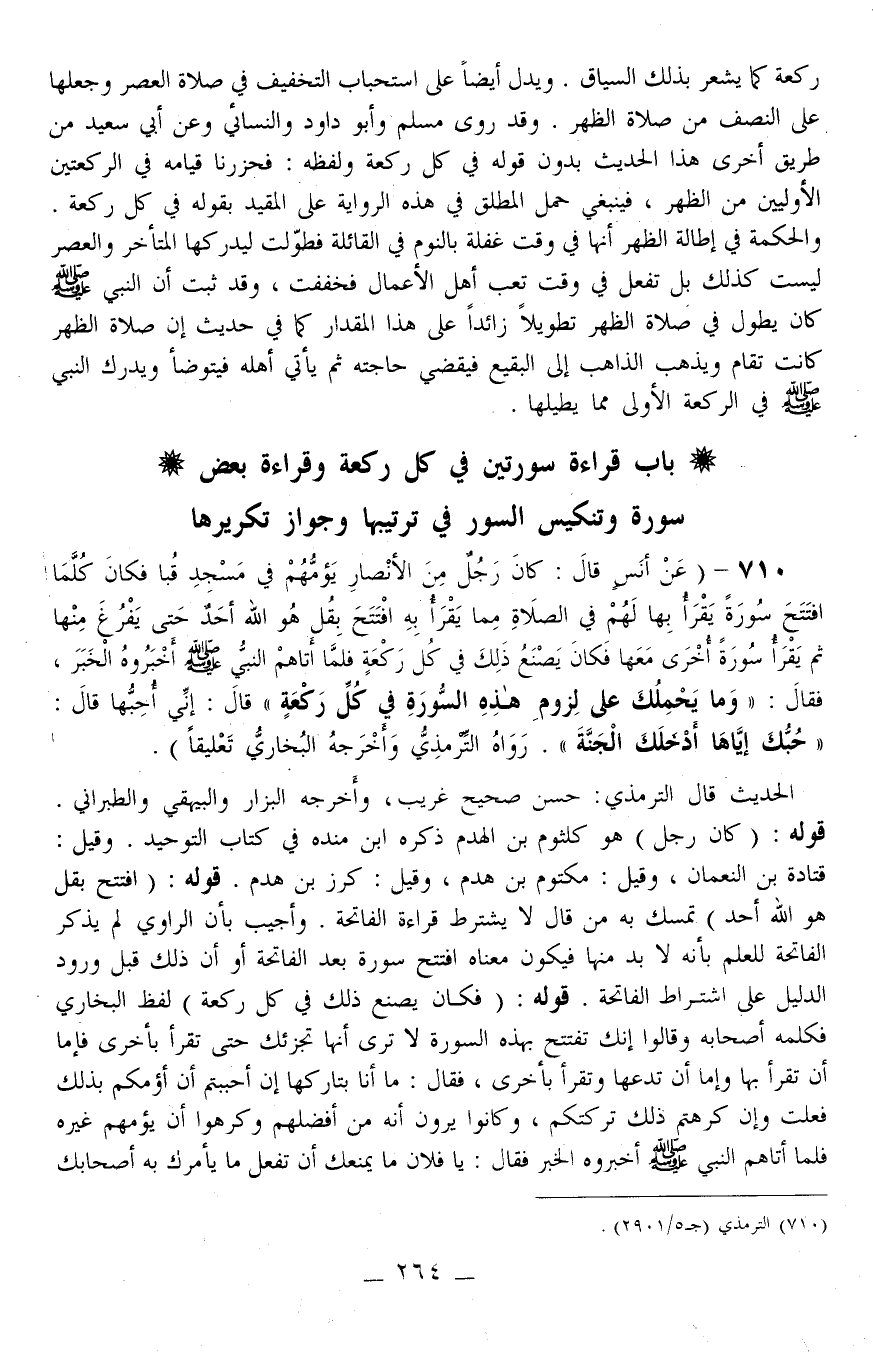 ركعة كما يشعر بذلك السياق . ويدل أيضاً على استحباب التخفيف في صلاة العصر وجعلها
على النصف من صلاة الظهر . وقد روى مسلم وأبو داود والنسائي وعن أبي سعيد من
طريق أخرى هذا الحديث بدون قوله في كل ركعة ولفظه : فحزرنا قيامه في الركعتين
الأوليين من الظهر ، فينبغي حمل المطلق في هذه الرواية على المقيد بقوله في كل ركعة .
والحكمة في إطالة الظهر أنها في وقت غفلة بالنوم في القائلة فطوّلت ليدركها المتأخر والعصر
ليست كذلك بل تفعل في وقت تعب أهل الأعمال فخففت ، وقد ثبت أن النبي ﷺ
كان يطول في صلاة الظهر تطويلاً زائداً على هذا المقدار كما في حديث إن صلاة الظهر
كانت تقام ويذهب الذاهب إلى البقيع فيقضي حاجته ثم يأتي أهله فيتوضأ ويدرك النبي
ﷺ في الركعة الأولى مما يطيلها .
باب قراءة سورتين في كل ركعة وقراءة بعض
سورة وتنكيس السور في ترتيبها وجواز تكريرها
٧١٠ – ( عَنْ أنَسٍ قالَ : كانَ رَجُلٌ مِنَ الأنْصارِ يَؤمُّهُمْ في مَسْجِدِ قُبا فكانَ كُلَّمَا
افتَتَحَ سُورَةً يَقْرَأُ بِها لَهُمْ في الصلَاةِ مِما يَقْرَأُ بِهِ افْتَتَحَ بِقُل هُوَ الله أحَدٌ حَتى يَفْرُغَ مِنْها
ثم يَقْرَأُ سُورَةً أُخْرَى مَعَها فكانَ يَصْنَعُ ذلِكَ في كُل رَكْعَةٍ فلمَّا أتاهمْ النبيُّ ﷺ أخْبَرُوهُ الخَبَرَ ،
فقالَ : « وَما يَحْمِلُكَ على لِزومِ هٰذِهِ السُّورَةِ في كُلِّ رَكْعَةٍ » قالَ : إنِّي أُحِبُّها قالَ :
« حُبُّكَ إيَّاهَا أدْخَلَكَ الْجَنَّةَ » . رَوَاهُ التِّرمذِيُّ وَأخْرَجهُ البُخاريُّ تَعْليقاً ) .
الحديث قال الترمذي: حسن صحيح غريب، وأخرجه البزار والبيهقي والطبراني .
قوله : ( كان رجل ) هو كلثوم بن الهدم ذكره ابن منده في كتاب التوحيد . وقيل :
قتادة بن النعمان ، وقيل : مكتوم بن هدم ، وقيل : كرز بن هدم . قوله : ( افتتح بقل
هو الله أحد ) تمسك به من قال لا يشترط قراءة الفاتحة . وأجيب بأن الراوي لم يذكر
الفاتحة للعلم بأنه لا بد منها فيكون معناه افتتح سورة بعد الفاتحة أو أن ذلك قبل ورود
الدليل على اشتراط الفاتحة . قوله : ( فكان يصنع ذلك في كل ركعة ) لفظ البخاري
فكلمه أصحابه وقالوا إنك تفتتح بهذه السورة لا ترى أنها تجزئك حتى تقرأ بأخرى فإما
أن تقرأ بها وإما أن تدعها وتقرأ بأخرى ، فقال : ما أنا بتاركها إن أحببتم أن أؤمكم بذلك
فعلت وإن كرهتم ذلك تركتكم ، وكانوا يرون أنه من أفضلهم وكرهوا أن يؤمهم غيره
فلما أتاهم النبي ﷺ أخبروه الخبر فقال : يا فلان ما يمنعك أن تفعل ما يأمرك به أصحابك
(٧١٠) الترمذي (جـ٢٩٠١/٥) .
– ٢٦٤ –